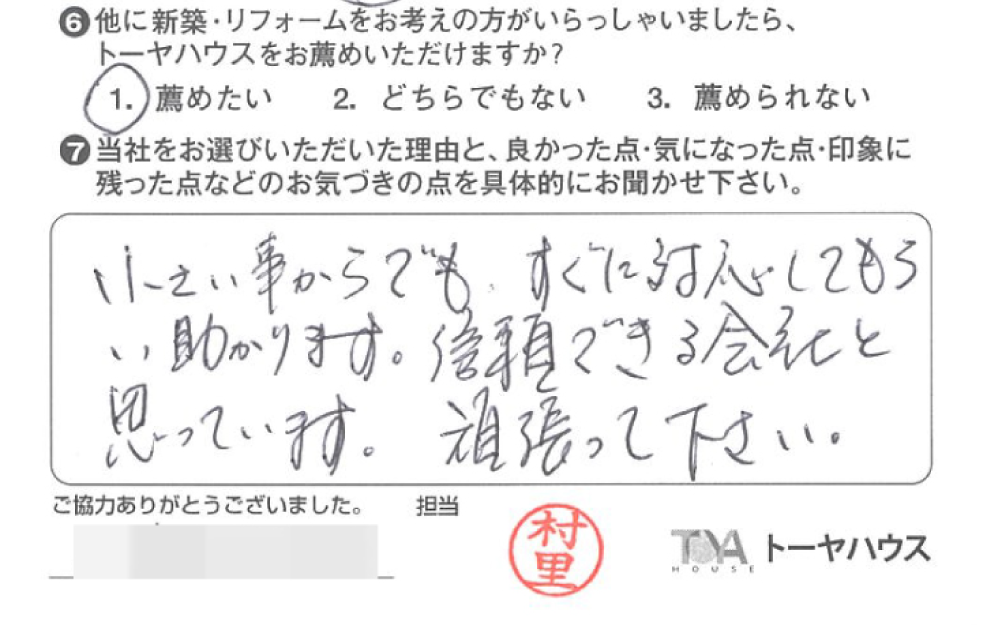 ❻他に新築・リフォームをお考えの方がいらっしゃいましたら、
トーヤハウスをお薦めいただけますか?
1. 薦めたい 2. どちらでもない 3. 薦められない
❼当社をお選びいただいた理由と、良かった点・気になった点・印象に
残った点などのお気づきの点を具体的にお聞かせ下さい。
小さい事からでも、すぐに対応してもら
い助かります。信頼できる会社と
思っています。頑張って下さい。
ご協力ありがとうございました。 担当
村里
TOYA HOUSE トーヤハウス